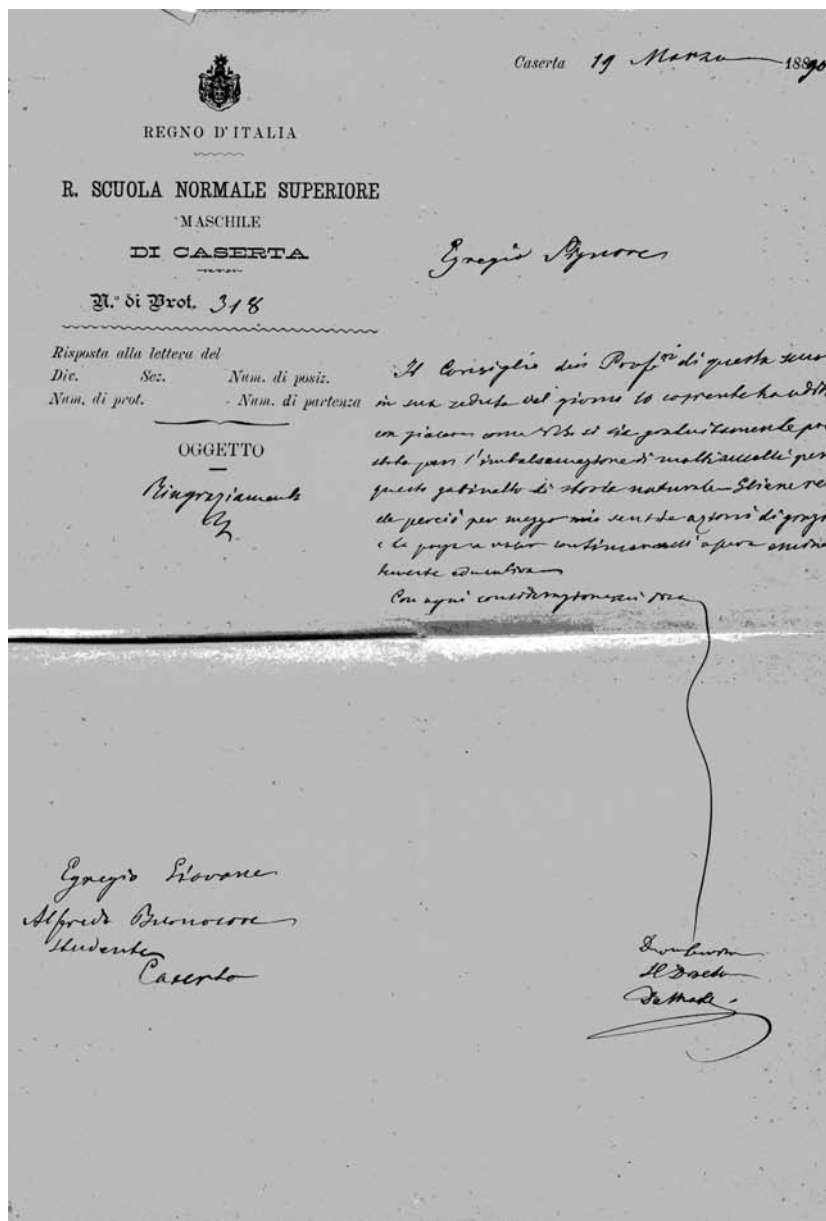 Caserta 19 Marzo 1890
REGNO D'ITALIA
R. SCUOLA NORMALE SUPERIORE
MASCHILE
DI CASERTA
N.º di Prot. 318
Risposta alla lettera del
Div. Sez. Num. di posiz.
Num. di prot. - Num. di partenza
OGGETTO
Ringraziamenti
Egregio Signore
Il Consiglio dei Prof.ri di questa
in sua seduta del giorno 10 corrente ha
con piacere come si sia gratuitamente
per l'imbalsamazione di molti uccelli per
questo gabinetto di storia naturale
perciò per mezzo mio
e La prega a voler
educativa
Con ogni considerazione
Il Diretto
Egregio Giovane
Alfredo Buonocore
studente
Caserta